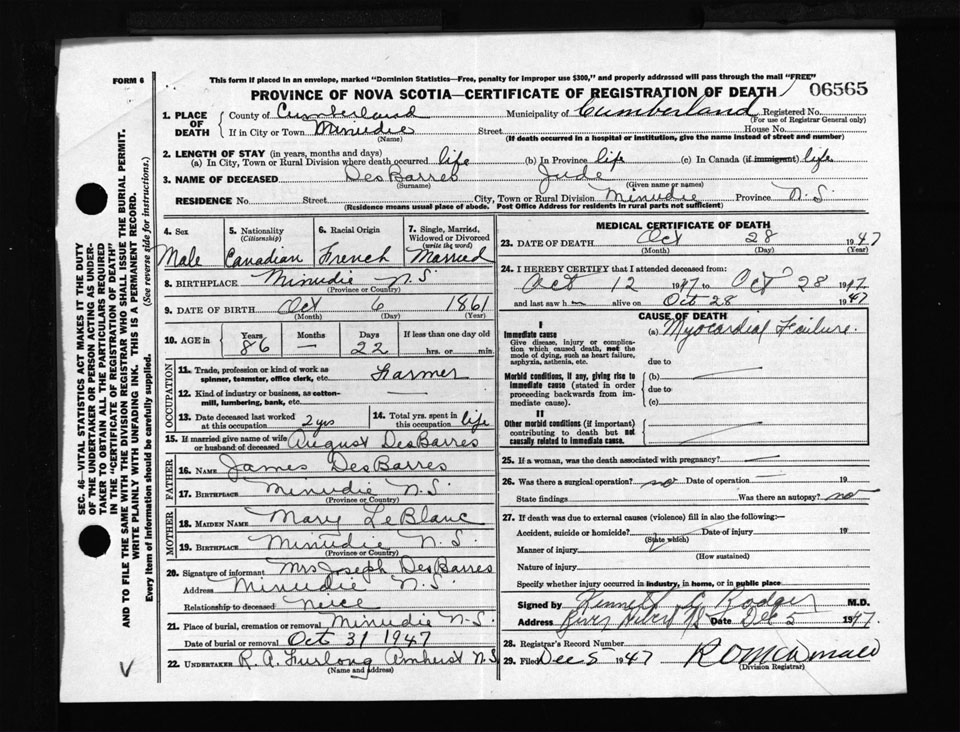 FORM 6
This form if placed in an envelope, marked "Dominion Statistics—Free, penalty for improper use $300," and properly addressed will pass through the mail "FREE"
PROVINCE OF NOVA SCOTIA—CERTIFICATE OF REGISTRATION OF DEATH
06565
1. PLACE OF DEATH
County of Cumberland Municipality of Cumberland Registered No.
(For use of Registrar General only)
If in City or Town Minudie Street House No.
(Name) (If death occurred in a hospital or institution, give the name instead of street and number)
2. LENGTH OF STAY (in years, months and days)
(a) In City, Town or Rural Division where death occurred life (b) In Province life (c) In Canada (if immigrant) life
3. NAME OF DECEASED DesBarres Jude
(Surname) (Given name or names)
RESIDENCE No. Street City, Town or Rural Division Minudie Province N.S.
(Residence means usual place of abode. Post Office Address for residents in rural parts not sufficient)
4. Sex Male
5. Nationality (Citizenship) Canadian
6. Racial Origin French
7. Single, Married, Widowed or Divorced (write the word) Married
8. BIRTHPLACE Minudie N.S.
(Province or Country)
9. DATE OF BIRTH Oct 6 1861
(Month) (Day) (Year)
10. AGE in Years 86 Months — Days 22 If less than one day old
hrs. or min.
OCCUPATION
11. Trade, profession or kind of work as spinner, teamster, office clerk, etc. Farmer
12. Kind of industry or business, as cotton-mill, lumbering, bank, etc. —
13. Date deceased last worked at this occupation 2 yrs
14. Total yrs. spent in this occupation life
15. If married give name of wife or husband of deceased August DesBarres
FATHER
16. NAME James DesBarres
17. BIRTHPLACE Minudie N.S.
(Province or Country)
MOTHER
18. MAIDEN NAME Mary LeBlanc
19. BIRTHPLACE Minudie N.S.
(Province or Country)
20. Signature of informant Mrs Joseph DesBarres
Address Minudie N.S.
Relationship to deceased Neice
21. Place of burial, cremation or removal Minudie N.S.
Date of burial or removal Oct 31 1947
22. UNDERTAKER R. A. Furlong Amherst N.S.
(Name and address)
MEDICAL CERTIFICATE OF DEATH
23. DATE OF DEATH Oct 28 1947
(Month) (Day) (Year)
24. I HEREBY CERTIFY that I attended deceased from:
Oct 12 1947 to Oct 28 1947
and last saw h alive on Oct 28 1947
CAUSE OF DEATH
I
Immediate cause (a) Myocardial Failure.
Give disease, injury or complication which caused death, not the mode of dying, such as heart failure, asphyxia, asthenia, etc.
due to
Morbid conditions, if any, giving rise to immediate cause (stated in order proceeding backwards from immediate cause).
(b)
due to
(c)
II
Other morbid conditions (if important) contributing to death but not causally related to immediate cause.
25. If a woman, was the death associated with pregnancy? —
26. Was there a surgical operation? no Date of operation — 19
State findings Was there an autopsy? no
27. If death was due to external causes (violence) fill in also the following:—
Accident, suicide or homicide? Date of injury 19
(State which)
Manner of injury
(How sustained)
Nature of injury
Specify whether injury occurred in industry, in home, or in public place
Signed by Kenneth G Rodger M.D.
Address River Hebert NS Date Dec 5 1947.
28. Registrar's Record Number
29. Filed Dec 5 1947
(Division Registrar)
SEC. 46—VITAL STATISTICS ACT MAKES IT THE DUTY
OF THE UNDERTAKER OR PERSON ACTING AS UNDER-
TAKER TO OBTAIN ALL THE PARTICULARS REQUIRED
IN THE "CERTIFICATE OF REGISTRATION OF DEATH"
AND TO FILE THE SAME WITH THE DIVISION REGISTRAR WHO SHALL ISSUE THE BURIAL PERMIT.
WRITE PLAINLY WITH UNFADING INK. THIS IS A PERMANENT RECORD.
Every item of information should be carefully supplied. (See reverse side for instructions.)